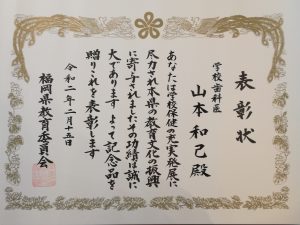 表彰状
学校歯科医
山本和己殿
あなたは学校保健の充実発展に
尽力され本県の教育文化の振興
に寄与されましたその功績は誠に
大であります よって記念品を
贈りこれを表彰します
令和二年二月十五日
福岡県教育委員会